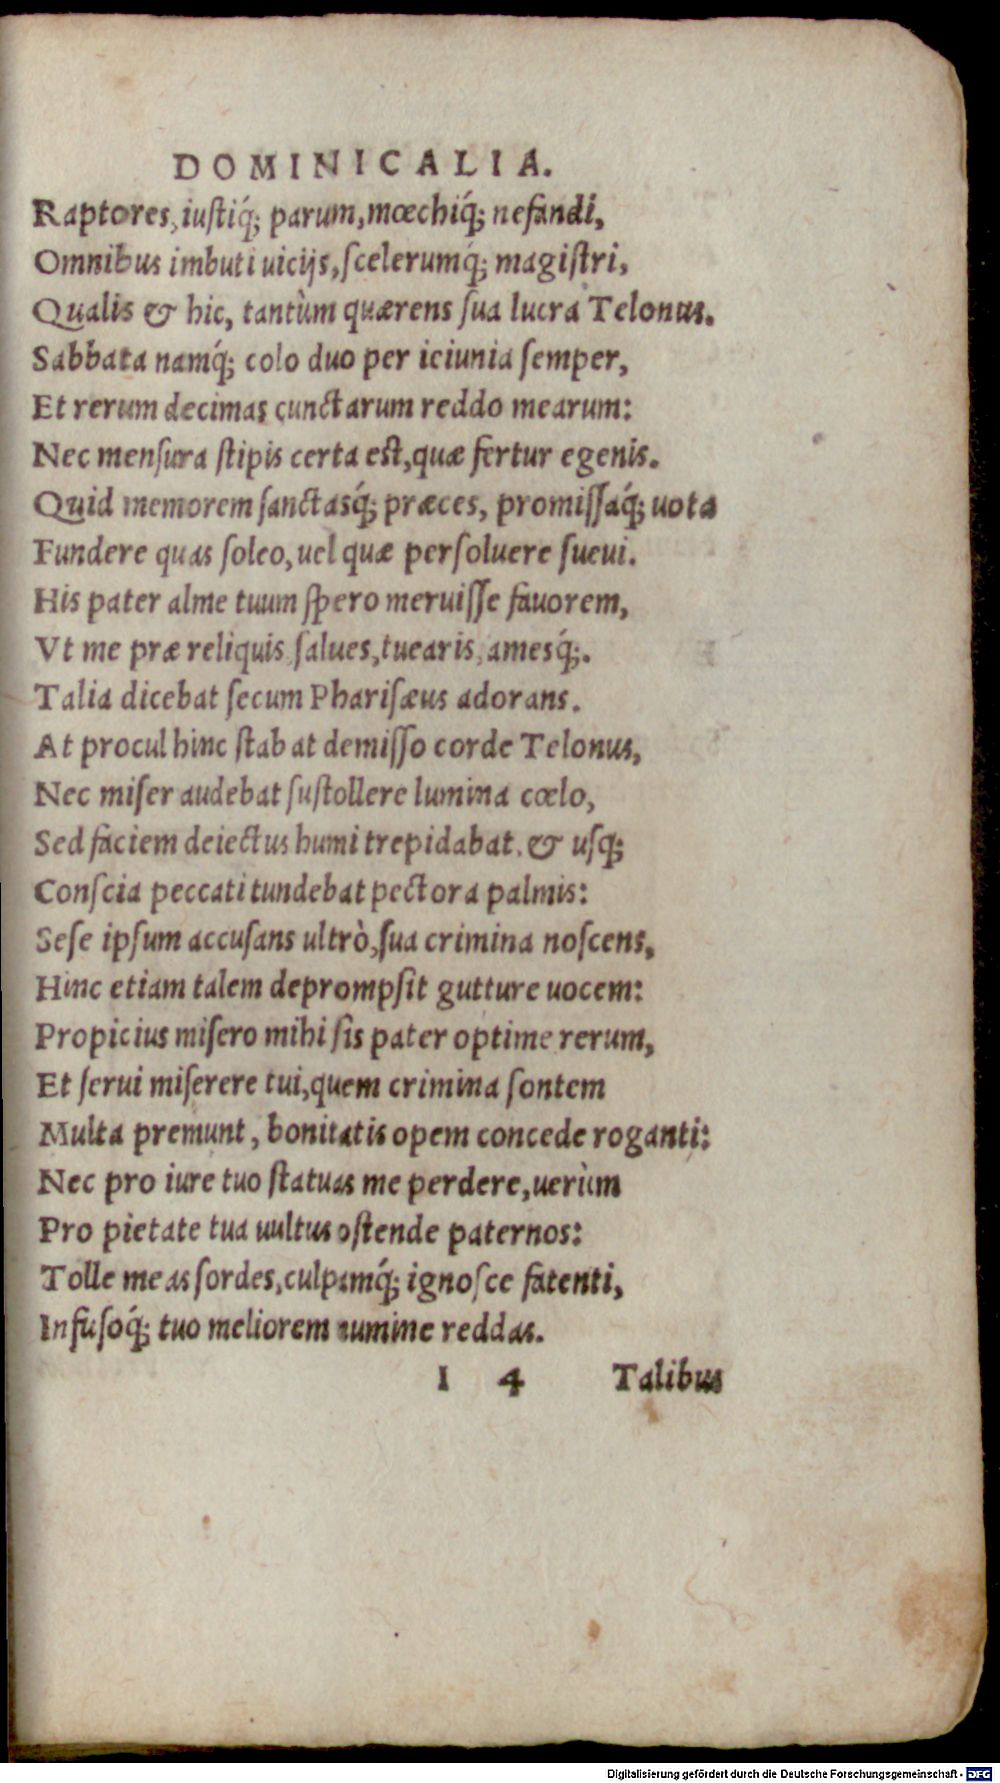 DOMINICALIA.
Raptores, iustiq́; parum, mœchiq́; nefandi,
Omnibus imbuti uicijs, scelerumq́; magistri,
Qualis & hic, tantùm quærens sua lucra Telonus.
Sabbata namq́; colo duo per ieiunia semper,
Et rerum decimas cunctarum reddo mearum:
Nec mensura stipis certa est, quæ fertur egenis.
Quid memorem sanctasq́; præces, promissaq́; uota
Fundere quas soleo, uel quæ persoluere sueui.
His pater alme tuum spero meruisse fauorem,
Vt me præ reliquis salues, tuearis, amesq́;.
Talia dicebat secum Pharisæus adorans.
At procul hinc stabat demisso corde Telonus,
Nec miser audebat sustollere lumina cœlo,
Sed faciem deiectus humi trepidabat, & usq;
Conscia peccati tundebat pectora palmis:
Sese ipsum accusans ultrò, sua crimina noscens,
Hinc etiam talem deprompsit gutture uocem:
Propicius misero mihi sis pater optime rerum,
Et serui miserere tui, quem crimina sontem
Multa premunt, bonitatis opem concede roganti:
Nec pro iure tuo statuas me perdere, uerùm
Pro pietate tua uultus ostende paternos:
Tolle meas sordes, culpamq́; ignosce fatenti,
Infusoq́; tuo meliorem numine reddas.
I 4 Talibus
Digitalisierung gefördert durch die Deutsche Forschungsgemeinschaft - DFG